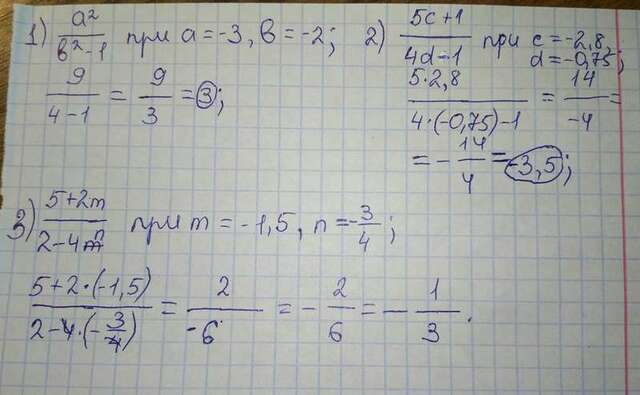 1) a²/(в²-1) при a = -3, в = -2;
9/(4-1) = 9/3 = 3;
2) (5c+1)/(4d-1) при c = -2,8
d = -0,75;
(5·2,8)/(4·(-0,75)-1) = 14/(-4) =
= -14/4 = -3,5;
3) (5+2m)/(2-4n) при m = -1,5, n = -3/4;
(5+2·(-1,5))/(2-4·(-3/4)) = 2/(-6) = -2/6 = -1/3.